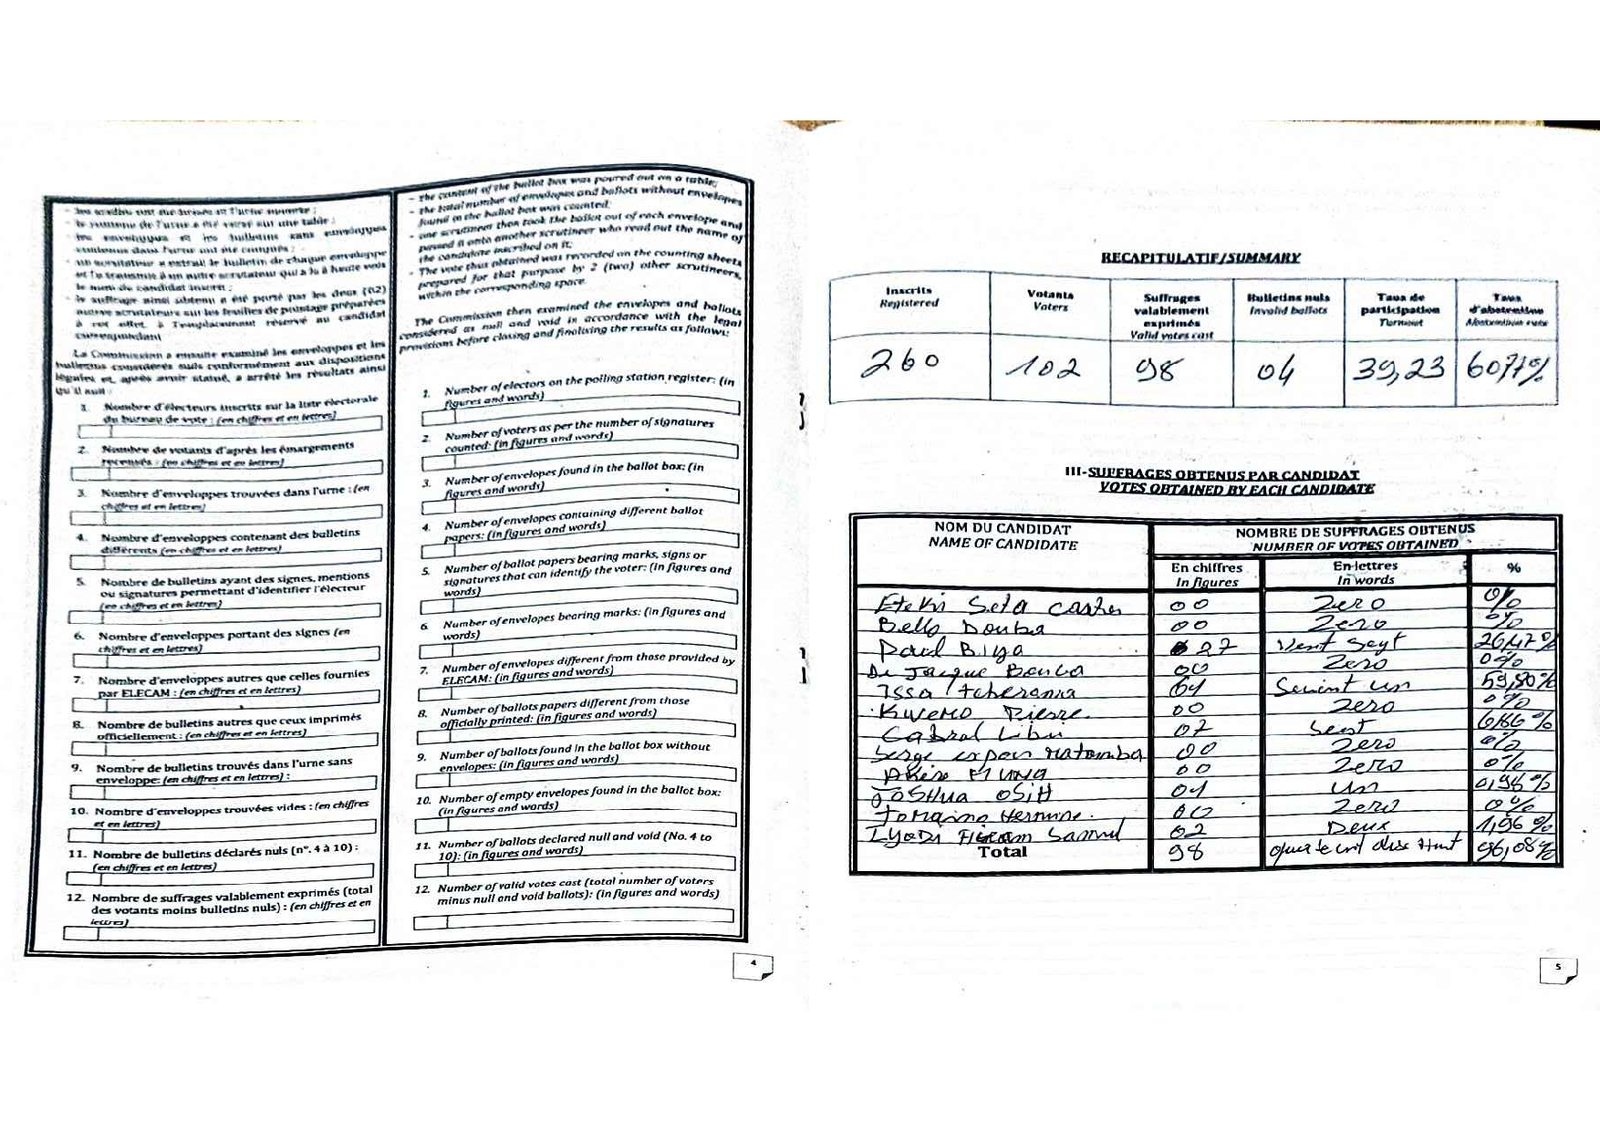 - les scellés ont été brisés et l'urne ouverte ;
- le contenu de l'urne a été versé sur une table ;
- les enveloppes et les bulletins sans enveloppes
contenus dans l'urne ont été comptés ;
- un scrutateur a extrait le bulletin de chaque enveloppe
et l'a transmis à un autre scrutateur qui a lu à haute voix
le nom du candidat inscrit ;
- le suffrage ainsi obtenu a été porté par les deux (02)
autres scrutateurs sur les feuilles de pointage préparées
à cet effet, à l'emplacement réservé au candidat
correspondant
La Commission a ensuite examiné les enveloppes et les
bulletins considérés nuls conformément aux dispositions
légales et, après avoir statué, a arrêté les résultats ainsi
qu'il suit :
1. Nombre d'électeurs inscrits sur la liste électorale
du bureau de vote : (en chiffres et en lettres)
2. Nombre de votants d'après les émargements
recensés : (en chiffres et en lettres)
3. Nombre d'enveloppes trouvées dans l'urne : (en
chiffres et en lettres)
4. Nombre d'enveloppes contenant des bulletins
différents (en chiffres et en lettres)
5. Nombre de bulletins ayant des signes, mentions
ou signatures permettant d'identifier l'électeur
(en chiffres et en lettres)
6. Nombre d'enveloppes portant des signes (en
chiffres et en lettres)
7. Nombre d'enveloppes autres que celles fournies
par ELECAM : (en chiffres et en lettres)
8. Nombre de bulletins autres que ceux imprimés
officiellement : (en chiffres et en lettres)
9. Nombre de bulletins trouvés dans l'urne sans
enveloppe: (en chiffres et en lettres) :
10. Nombre d'enveloppes trouvées vides : (en chiffres
et en lettres)
11. Nombre de bulletins déclarés nuls (n°. 4 à 10) :
(en chiffres et en lettres)
12. Nombre de suffrages valablement exprimés (total
des votants moins bulletins nuls) : (en chiffres et en
lettres)
- The content of the ballot box was poured out on a table;
- the total number of envelopes and ballots without envelopes
found in the ballot box was counted;
- one scrutineer then took the ballot out of each envelope and
passed it onto another scrutineer who read out the name of
the candidate inscribed on it;
- The vote thus obtained was recorded on the counting sheets
prepared for that purpose by 2 (two) other scrutineers,
within the corresponding space.
The Commission then examined the envelopes and ballots
considered as null and void in accordance with the legal
provisions before closing and finalising the results as follows:
1. Number of electors on the polling station register: (in
figures and words)
2. Number of voters as per the number of signatures
counted: (in figures and words)
3. Number of envelopes found in the ballot box: (in
figures and words)
4. Number of envelopes containing different ballot
papers: (in figures and words)
5. Number of ballot papers bearing marks, signs or
signatures that can identify the voter: (in figures and
words)
6. Number of envelopes bearing marks: (in figures and
words)
7. Number of envelopes different from those provided by
ELECAM: (in figures and words)
8. Number of ballots papers different from those
officially printed: (in figures and words)
9. Number of ballots found in the ballot box without
envelopes: (in figures and words)
10. Number of empty envelopes found in the ballot box:
(in figures and words)
11. Number of ballots declared null and void (No. 4 to
10): (in figures and words)
12. Number of valid votes cast (total number of voters
minus null and void ballots): (in figures and words)
4
RECAPITULATIF/SUMMARY
Inscrits Registered
Votants Voters
Suffrages valablement exprimés Valid votes cast
Bulletins nuls Invalid ballots
Taux de participation Turnout
Taux d'abstention Abstention rate
260 102 98 04 39,23 6077%
III-SUFFRAGES OBTENUS PAR CANDIDAT
VOTES OBTAINED BY EACH CANDIDATE
NOM DU CANDIDAT NOMBRE DE SUFFRAGES OBTENUS
NAME OF CANDIDATE NUMBER OF VOTES OBTAINED
En chiffres En lettres %
In figures In words
Ateki Seta Caxton 00 Zero 0%
Bello Bouba 00 Zero 0%
Paul Biya 27 Vent Sept 26,47%
Dr Jacque Bouba 00 Zero 0%
Issa Tchiroma 61 59,80%
Kwemo Pierre 00 Zero 0%
Cabral Libii 07 Sept 6,86%
Serge espoir Matomba 00 Zero 0%
Akere MUNA 00 Zero 0%
JOSHUA OSIH 01 un 0,98%
Tomaino Hermine. 00 Zero 0%
Iyodi Hiram Samuel 02 Deux 1,96%
Total 98 quatre vint dix Huit 96,08%
5